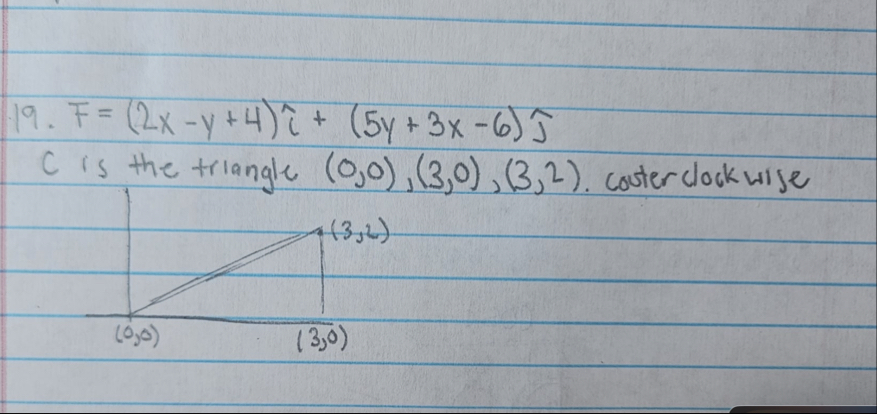 19. F = (2x - y + 4) î + (5y + 3x - 6) ĵ
C is the triangle (0,0), (3,0), (3,2). couterclockwise
(3,2)
(0,0) (3,0)